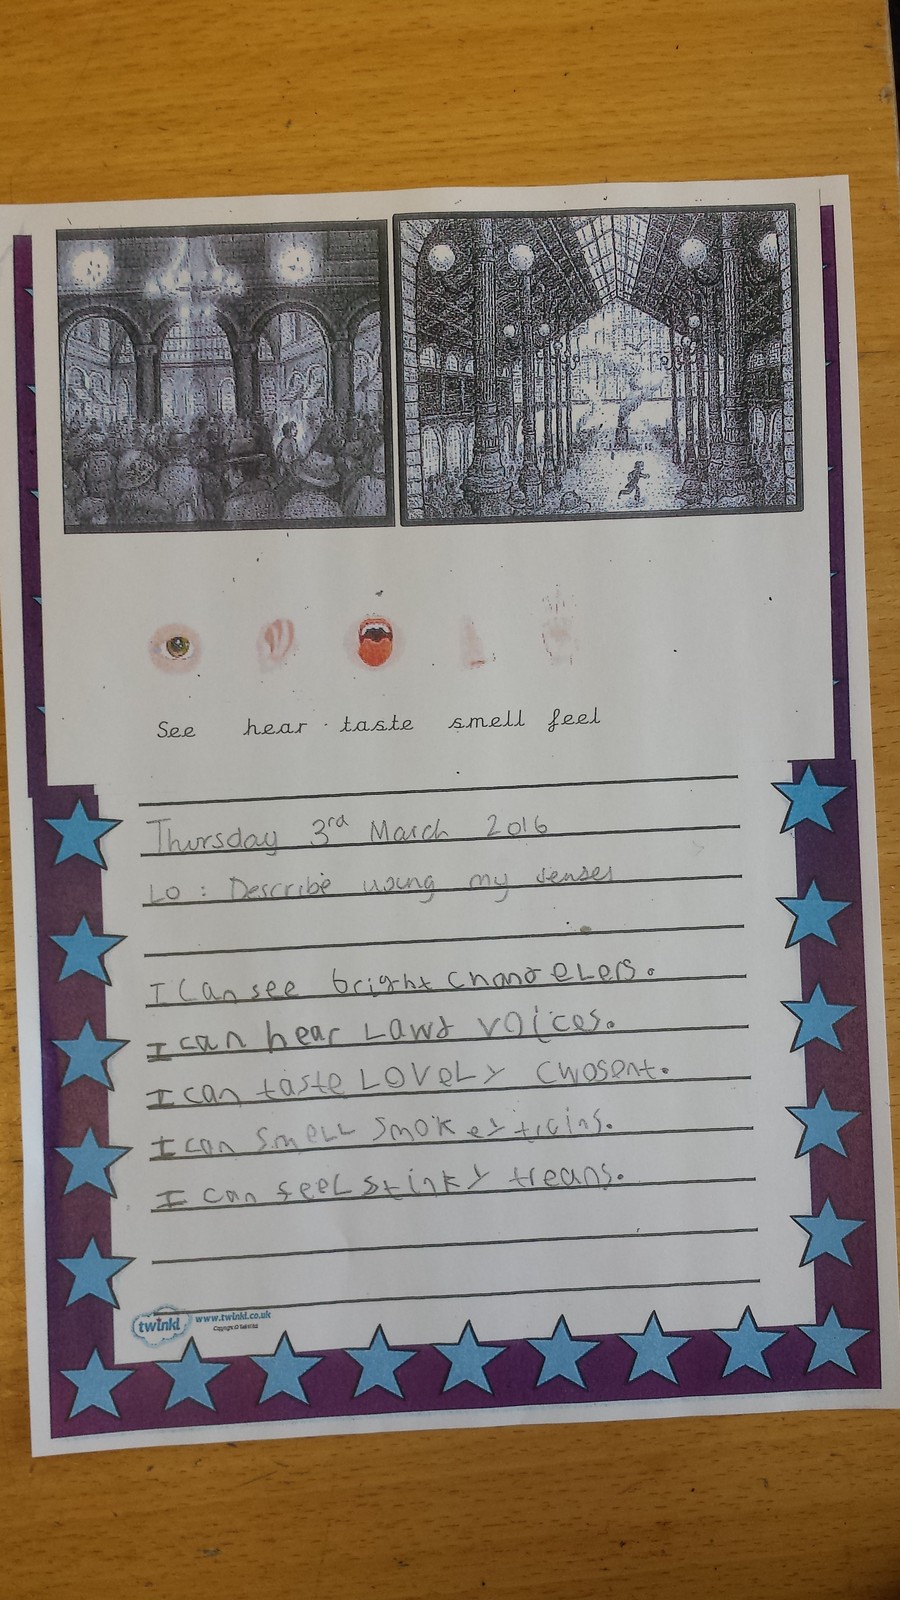 See hear taste smell feel
Thursday 3rd March 2016
LO: Describe using my senses
I can see bright chandelers.
I can hear Lawd voices.
I can taste LOVELY cwosent.
I can smell smokey trains.
I can feel stinky treans.
twinkl www.twinkl.co.uk